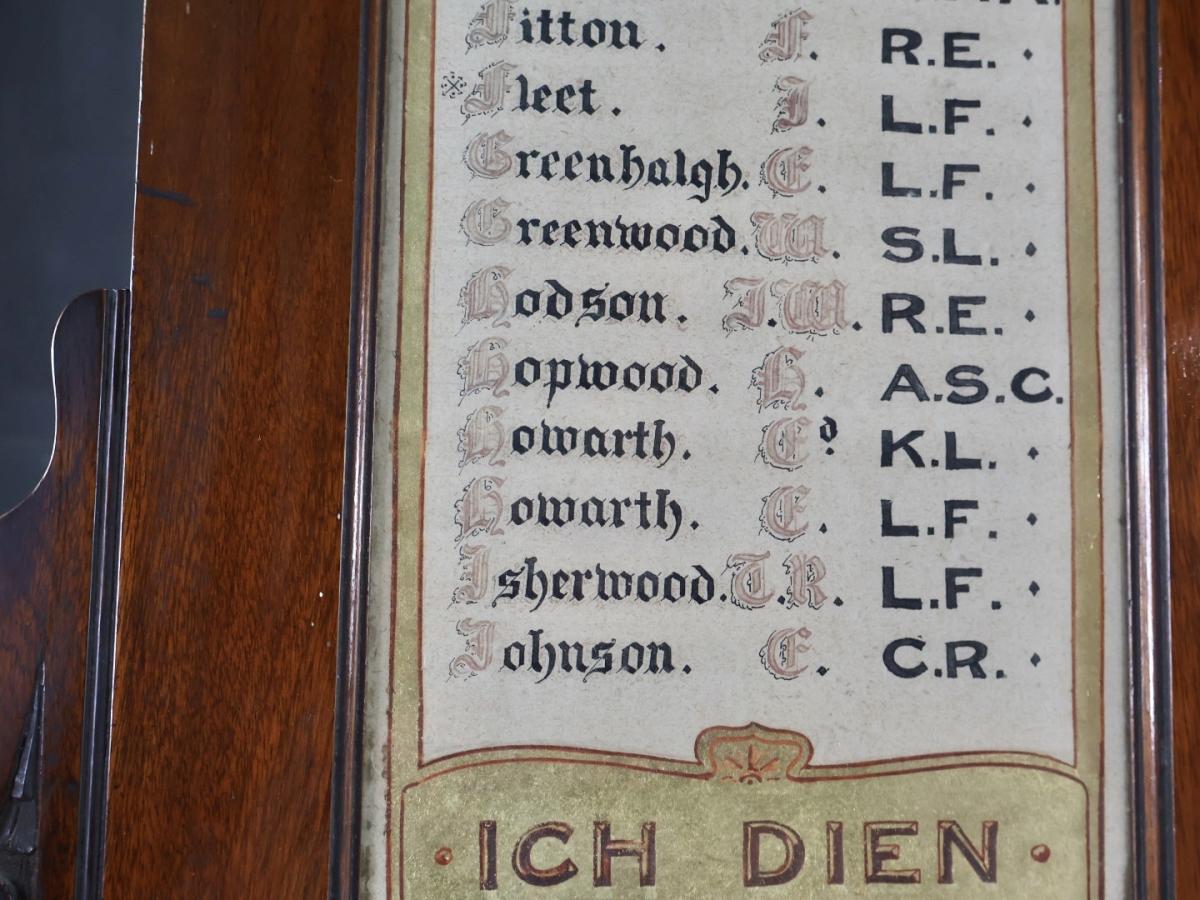 Fitton. F. R.E.
※Fleet. J. L.F.
Greenhalgh. E. L.F.
Greenwood. W. S.L.
Hodson. J.W. R.E.
Hopwood. H. A.S.C.
Howarth. Ed. K.L.
Howarth. E. L.F.
Isherwood. T.R. L.F.
Johnson. E. C.R.
· ICH DIEN ·